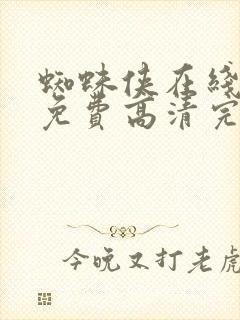 蜘蛛侠在线
免费高清完
今晚又打老虎